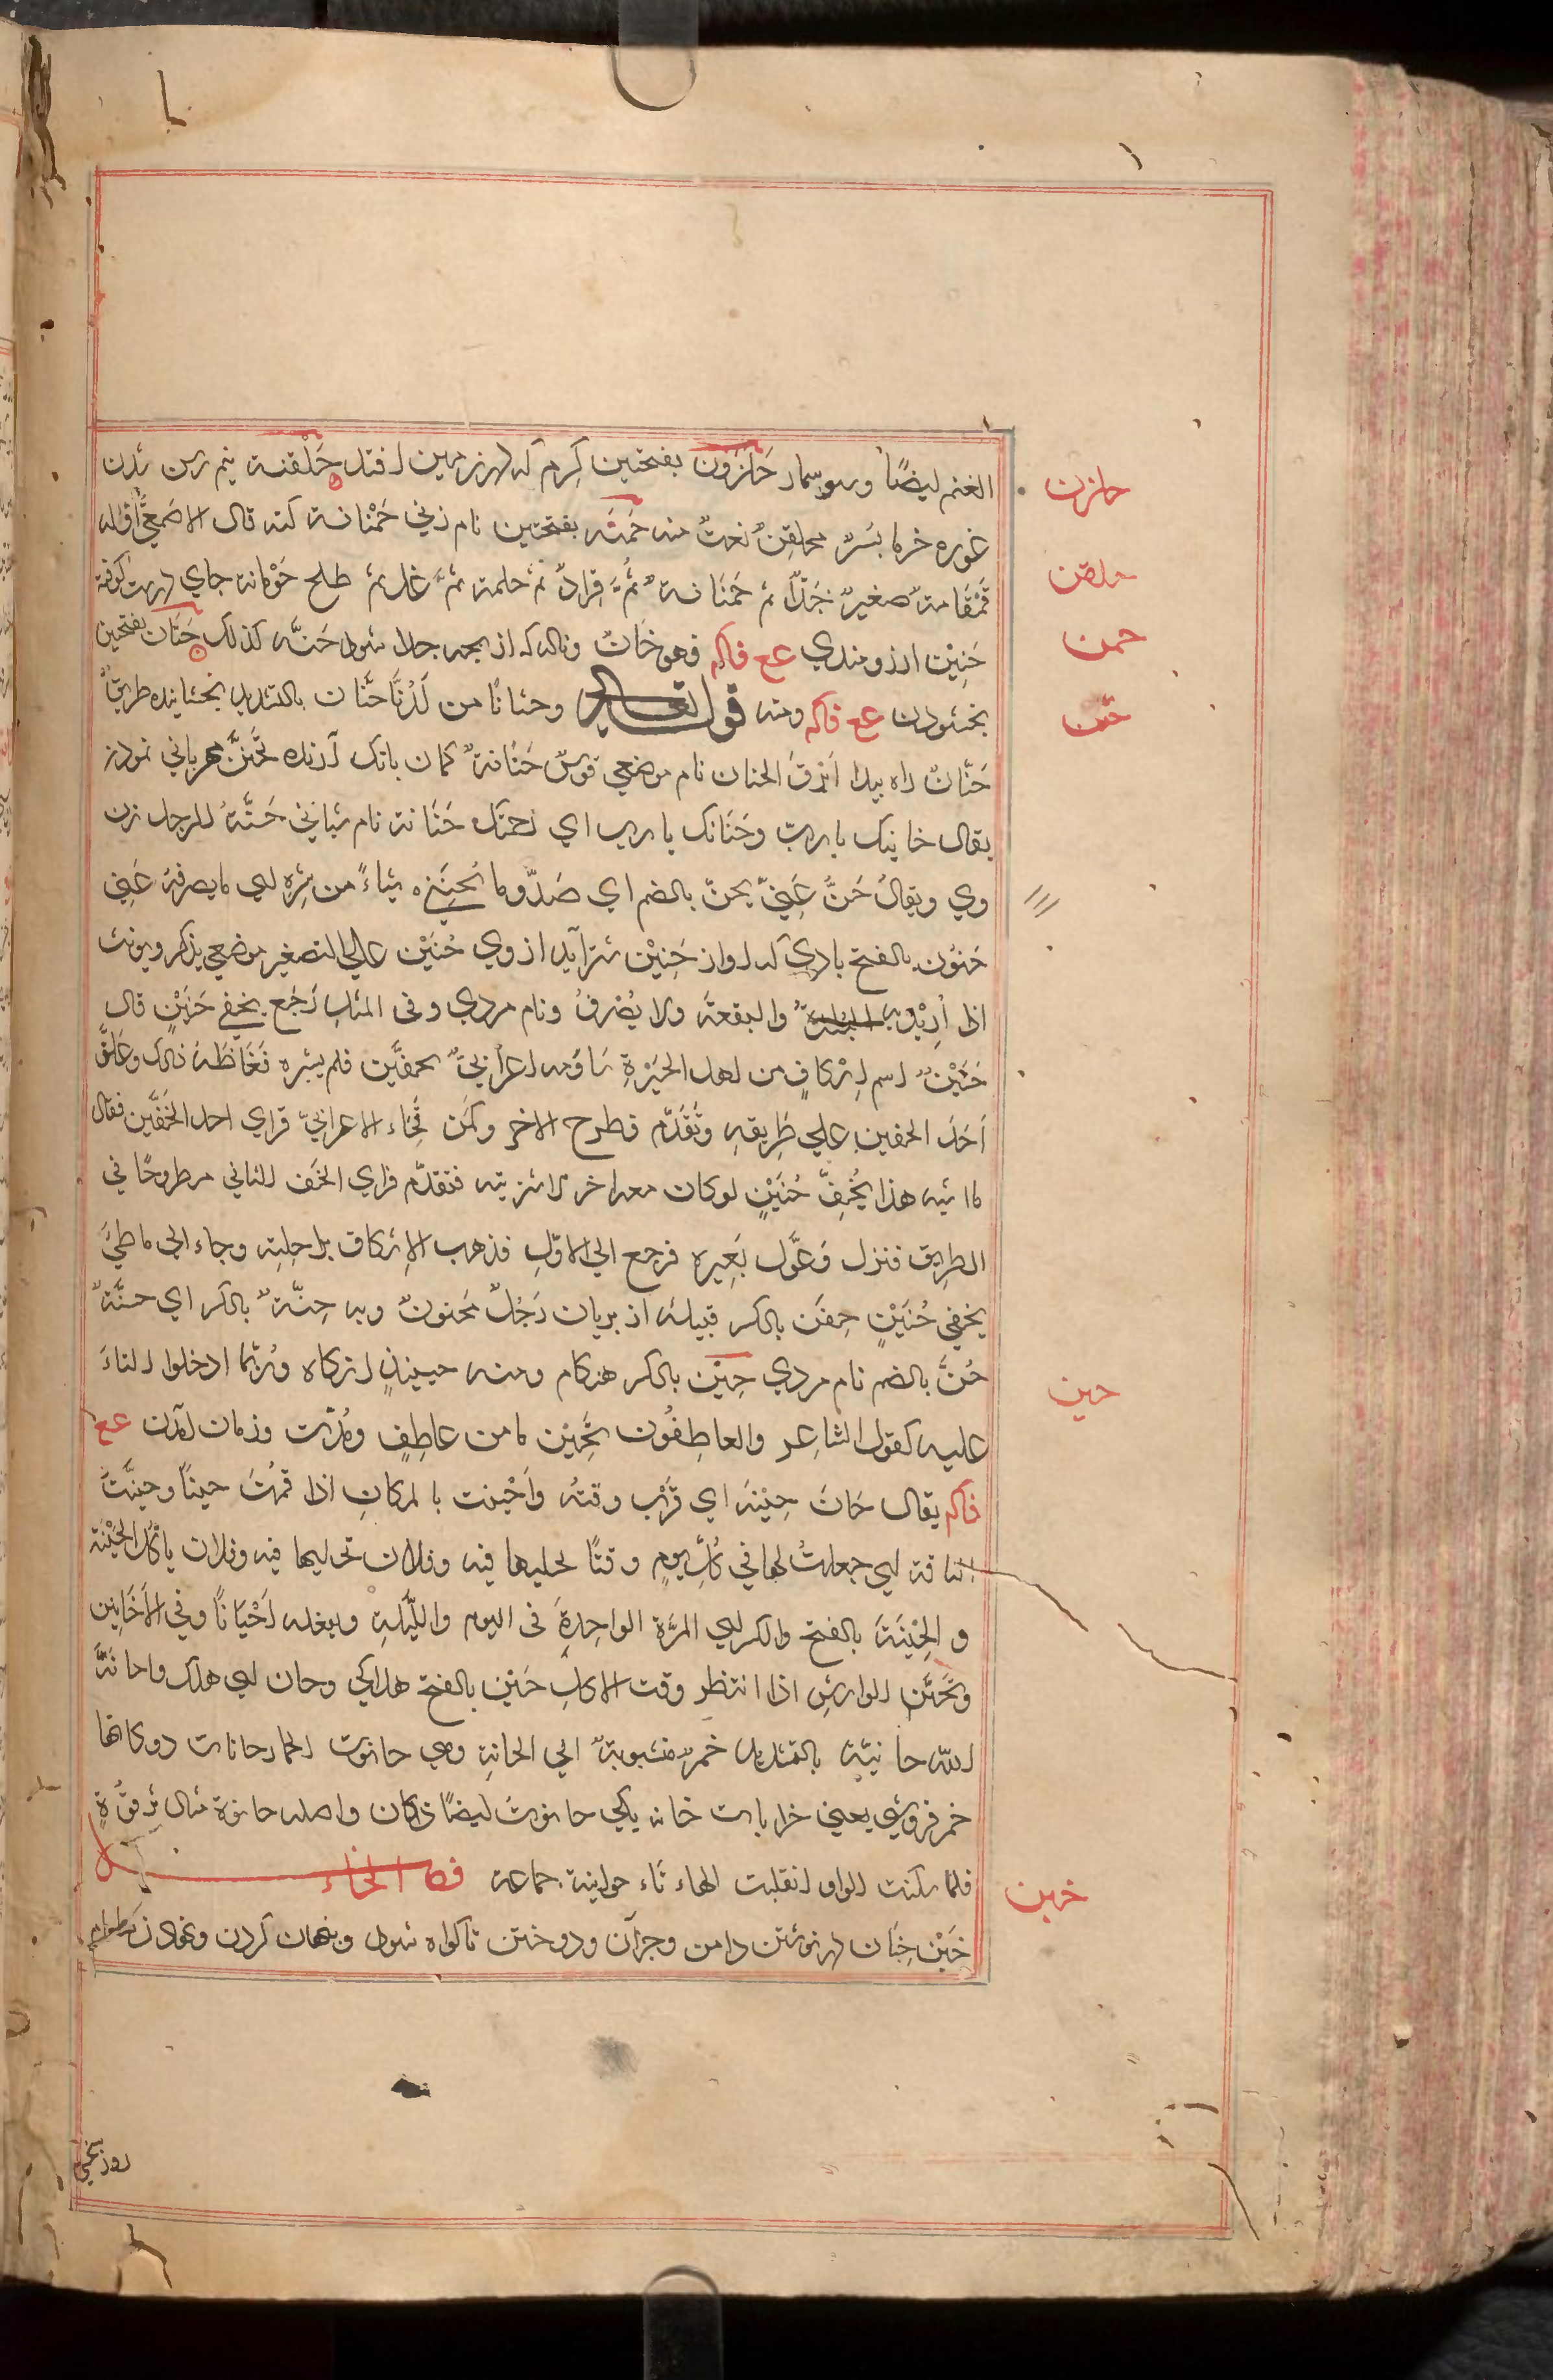 الغنم ايضًا وسوسمار حَلَزون بفتحتين كِرم كه در زمين افتد حَلْقنة نيم رس شدن
غوره خرما بُسْرٌ محلقِنٌ نعت منه حَمنَه بفتحتين نام زني حَمْنانة كنه قال الاصمعيُّ أوّله
قَمْقَامةٌ صغيرٌ جَدًّا ثم حَمنَانةٌ ثُمَّ قِرادٌ ثم حلمة ثمَّ عَلّ ثم طلح حَوْمانة جاي درشت كوفته
حَنِيْن ارزومندي عع فاكه فهو حَانٌ وناله كه از بچه جدا شود حَنَّه كذلك حَنَان بفتحتين
بخشودن عع فاكه ومنه قوله تعالى وحنانًا من لَدُنَّا حَنَّان بالتشديد بخشاينده طريقٌ
حَنّانٌ راه پيدا أبرَقُ الحنان نام موضعي قوسٌ حَنّانةٌ كمان بانك آرنده تَحَنُّن مهرباني نمودن
يقال حنانيك يا ربّ وحَنَانَك يا رب اي رحمتك حَنّانة نام شباني حَنَّةُ الرجل زن
وي ويقال حَنَّ عَنِّي يحنّ بالضم اي صَدَّ وما تَحْنِنُني شياءً من شرّه اي ما يصرفه عَنِّي
حَنون بالفتح بادي كه آواز حَنِيْن شتر آيد از وي حُنَيْن علي التصغير موضعي يذكر ويونث
اذا أرِيْد به البلدة والبقعة ولا يُصْرفُ ونام مردي وفي المثلِ رَجَع بخفي حُنَيْنٍ قال
حُنَيْنٌ اسم إسْكافٍ من اهل الحِيْرةِ سَاوَمه اعرابيٌّ بخفَّين فلم يشره فَغَاظَهُ ذلك وعَلَّقَ
أحَدَ الخفين علي طَرِيقهِ وتَقَدَّم فطرح الاخر وكَمَنَ فجَاء الاعرابيّ فراي احد الخُفَّين فقال
ما اشبه هذا بخُفِّ حُنَيْنٍ لو كان معه اخر لاشتريته فتقدّم فراي الخُف الثاني مطروحًا في
الطريق فنزل وعَقَل بَعِيره فرجع الي الاوّلِ فذهب الإسكاف براحلِته وجاء الي
بخفي حُنَيْنٍ حِنّ بالكسر قبيله از پريان رَجُلٌ مَحنونٌ وبه حِنّةٌ بالكسر اي جنَّةٌ
حُنَّ بالضم نام مردي حِيْن بالكسر هنكام ومنه حينيذٍ انكاه ورُبّما ادخلوا التاءَ
عليه كقول الشاعر والعاطِفُون تَحِيْن ما من عاطِفٍ ومُدّت وزمان آمدن عع
فاكه يقال حَانَ حِيْنهُ اي قَرُب وقتُه وأحْيَنت بالمكانِ اذا قمْتَ حينًا وحيَّنتُ
الناقة اي جعلتُ لها في كُلِّ يومٍ وقتًا احلبها فيه وفلان تحليبها فيه وفلان ياكُل الحَيْنة
والحِيْنةَ بالفتح والكسر اي المَرّة الواحِدةَ في اليوم والليّلةِ ويفعله أحْيَانًا وفي الأحَايين
وتَحَيَّن الوارش اذا انتظر وقت الاكلِ حَيْن بالفتح هلاكي وحان اي هلك واحانه
الله حانيّة بالتشديد خمرٌ منسوبةٌ الي الحانةِ وهي حانوت الخمار حانات دوكانها
خمر فروشي يعني خرابات خانه يكي حانوتٌ ايضًا دكان واصله حانوة مثال ترقُوةٍ
فلما سكنت الواو انقلبت الهاء تاء حوانيت جماعة فصل الخاء
خَبْن خِبَان در نوشتن دامن وجزآن ودوختن تا كوتاه شود وپنهان كردن طعام
حلزن
حلقن
حمن
حنن
حين
خبن
روز سختي